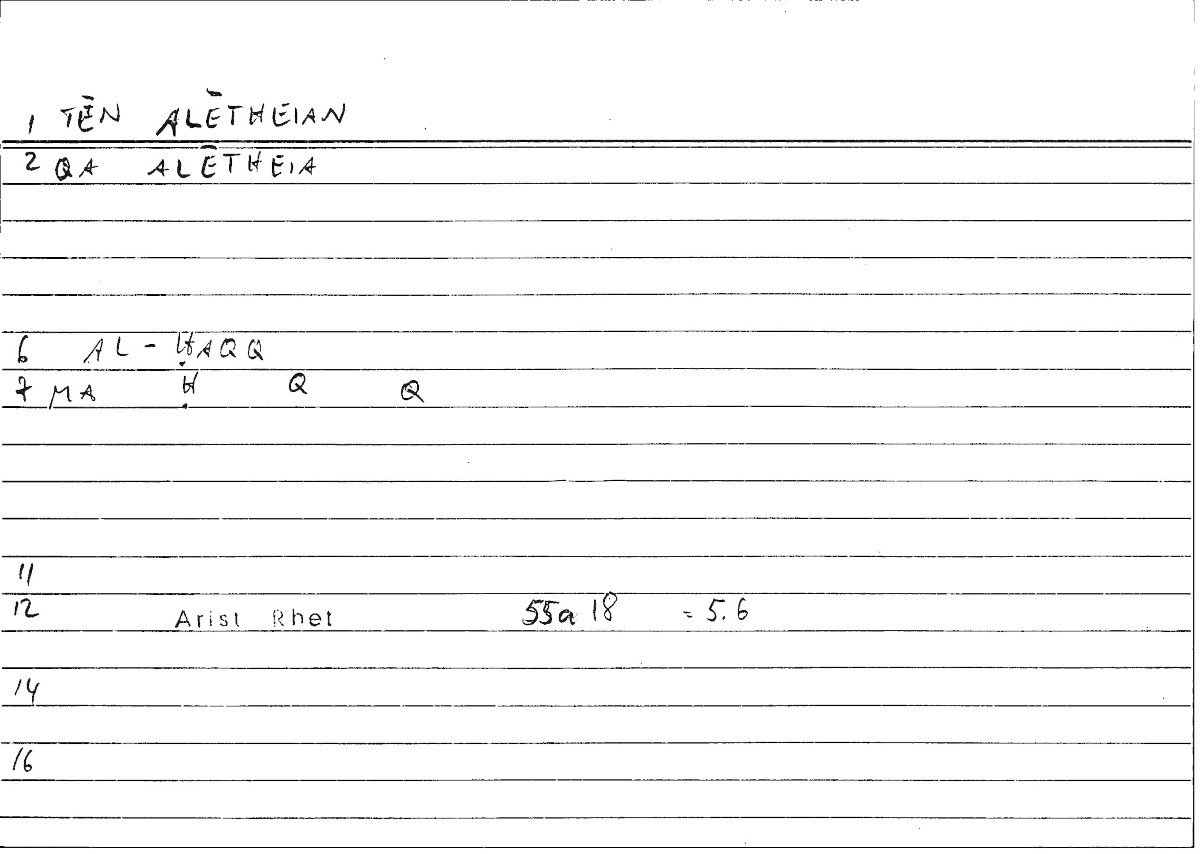 1 TĒN ALĒTHEIAN
2 QA ALĒTHEIA
6 AL-ḤAQQ
7 MA Ḥ Q Q
11
12 Arist Rhet 55a 18 = 5.6
14
16